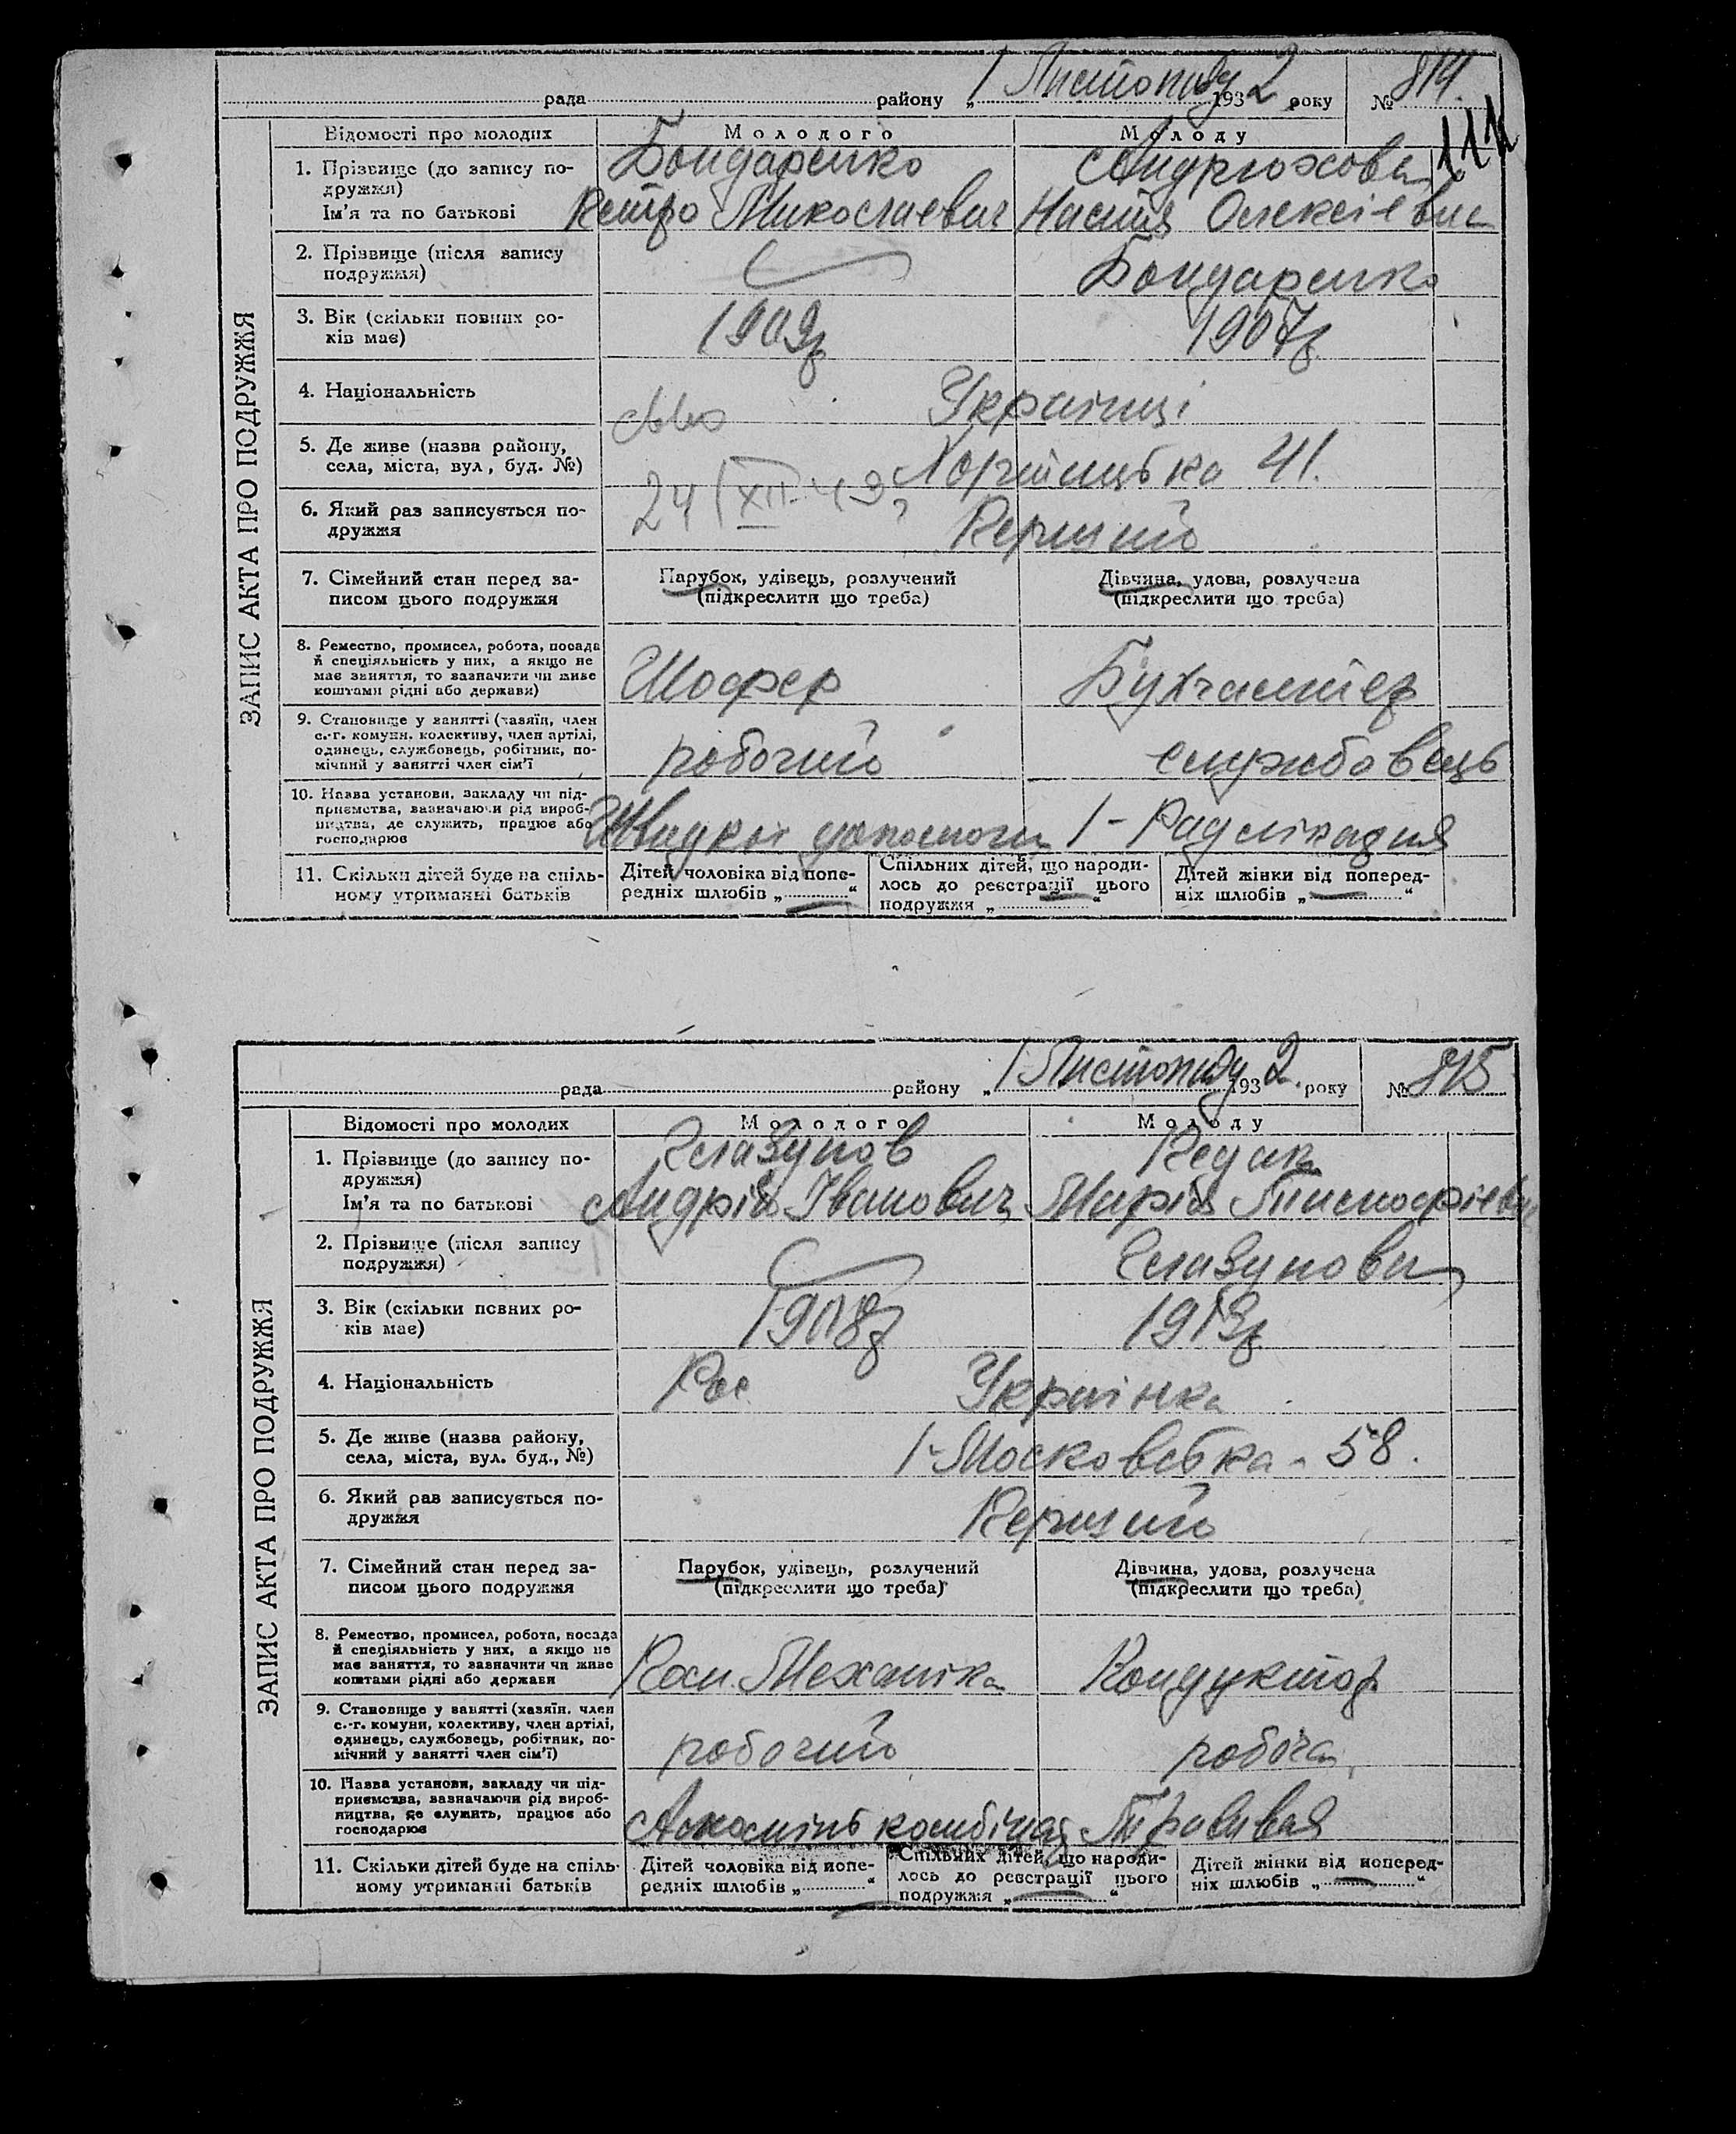 1 Листопаду 2 814.
рада района „ 193 року №
111
ЗАПИС АКТА ПРО ПОДРУЖЖЯ
Відомості про молодих Молодого Молоду
1. Прізвище (до запису по- Бондаренко Андрюхова
дружжя)
Ім'я та по батькові Петро Миколаевич Настя Олексіевна
2. Прізвище (після запису
подружжя) Бондаренко
3. Вік (скільки повних ро- 1909р 1907р
ків має)
4. Національність Українці
5. Де живе (назва району,
села, міста, вул, буд. №) Хортицька 41.
24/XII-43
6. Який раз записується по- Перший
дружжя
7. Сімейний стан перед за- Парубок, удівець, розлучений Дівчина, удова, розлучена
писом цього подружжя (підкреслити що треба) (підкреслити що треба)
8. Ремество, промисел, робота, посада
й спеціяльність у них, а якщо не
має заняття, то зазначити чи живе Шофер Бухгалтер
коштами рідні або держави)
9. Становище у занятті (хазяїн, член
с.-г. комуни, колективу, член артілі,
одинець, службовець, робітник, по- робочий службовець
мічний у занятті член сім'ї
10. Назва установи, закладу чи під-
приємства, зазначаючи рід вироб-
ництва, де служить, працює або Швидкої допомоги 1-Радлікарня
господарює
11. Скільки дітей буде на спіль- Дітей чоловіка від попе- Спільних дітей, що народи- Дітей жінки від поперед-
ному утриманні батьків редніх шлюбів „ “ лось до реєстрації цього ніх шлюбів „ “
подружжя „ “
1 Листопаду 2. 815
рада району „ 193 року №
ЗАПИС АКТА ПРО ПОДРУЖЖЯ
Відомості про молодих Молодого Молоду
1. Прізвище (до запису по- Глазунов Редак
дружжя)
Ім'я та по батькові Андрій Іванович Марія Тимофіевна
2. Прізвище (після запису
подружжя) Глазунова
3. Вік (скільки повних ро- 1908р 1913р
ків має)
4. Національність Рос Українка
5. Де живе (назва району,
села, міста, вул. буд., №) 1-Московська - 58.
6. Який раз записується по- Перший
дружжя
7. Сімейний стан перед за- Парубок, удівець, розлучений Дівчина, удова, розлучена
писом цього подружжя (підкреслити що треба) (підкреслити що треба)
8. Ремество, промисел, робота, посада
й спеціяльність у них, а якщо не
має заняття, то зазначити чи живе Пом. Механіка Кондуктор
коштами рідні або держави
9. Становище у занятті (хазяїн, член
с.-г. комуни, колективу, член артілі,
одинець, службовець, робітник, по- робочий робоча
мічний у занятті член сім'ї)
10. Назва установи, закладу чи під-
приємства, зазначаючи рід вироб-
ництва, де служить, працює або комбінат Трамвая
господарює
11. Скільки дітей буде на спіль- Дітей чоловіка від попе- Спільних дітей, що народи- Дітей жінки від поперед-
ному утриманні батьків редніх шлюбів „ “ лось до реєстрації цього ніх шлюбів „ “
подружжя „ “